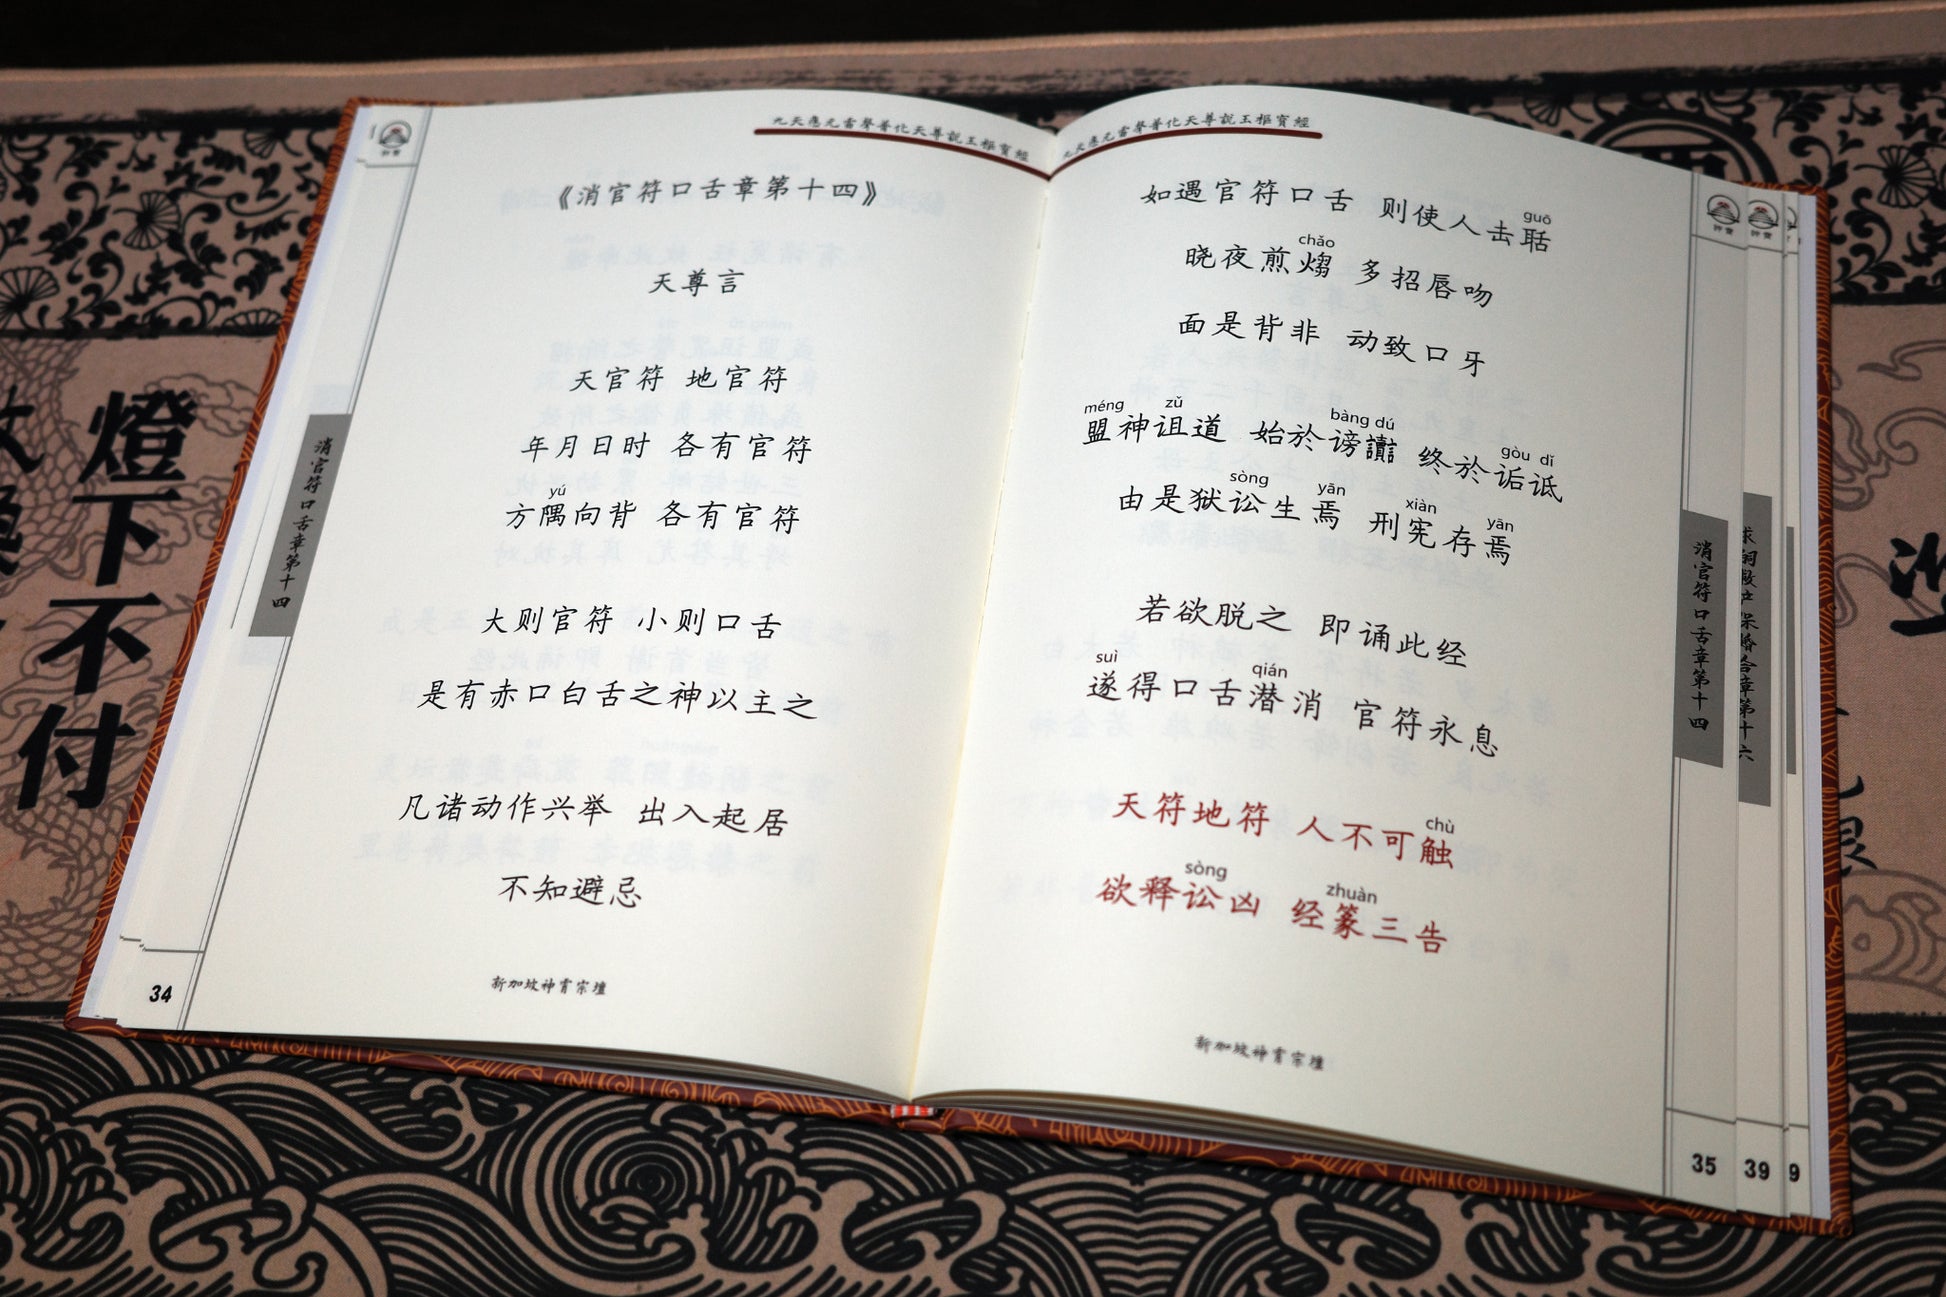 九天應元雷聲普化天尊說玉樞寳經
《消官符口舌章第十四》
天尊言
天官符 地官符
年月日时 各有官符
yú
方隅向背 各有官符
大则官符 小则口舌
是有赤口白舌之神以主之
凡诸动作兴举 出入起居
不知避忌
新加坡神霄宗壇
消官符口舌章第十四
34
九天應元雷聲普化天尊說玉樞寳經
如遇官符口舌 则使人击聒
guō
chǎo
晓夜煎煼 多招唇吻
面是背非 动致口牙
méng zǔ bàng dú
盟神诅道 始於谤讟 终於诟诋
gòu dǐ
sòng yān xiàn yān
由是狱讼生焉 刑宪存焉
若欲脱之 即诵此经
suì qián
遂得口舌潜消 官符永息
天符地符 人不可触
chù
sòng zhuàn
欲释讼凶 经篆三告
新加坡神霄宗壇
消官符口舌章第十四
35
婚合章第十六
39
9
燈下不付